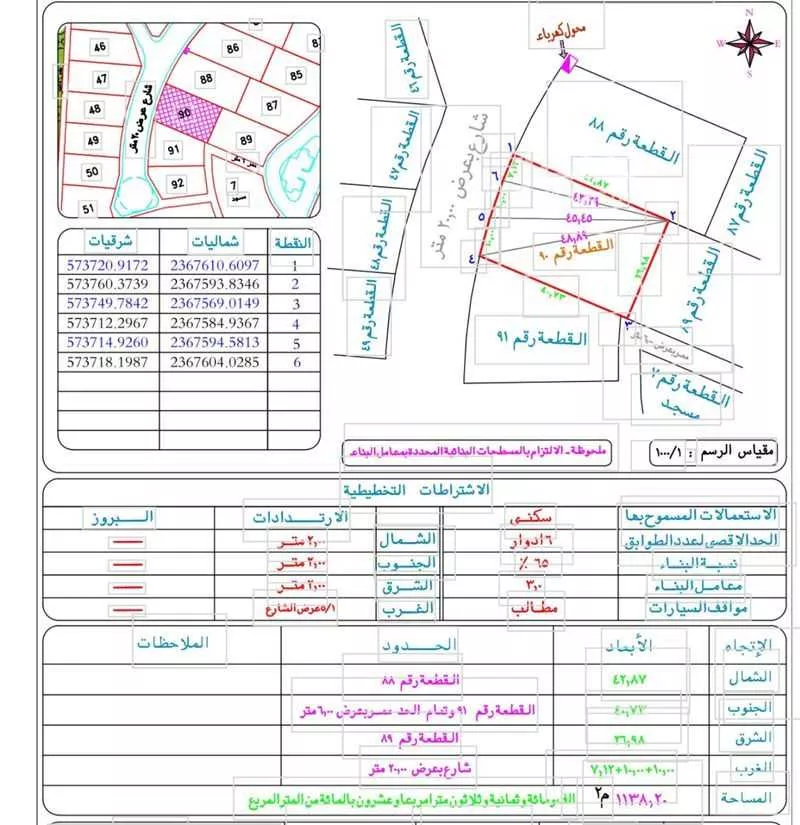 46
47
48
49
50
51
86
88
85
90
87
91
89
92
7
مسجد
شارع عرض ٢٠ متر
N
W
E
S
محول كهرباء
القطعة رقم ٤٦
القطعة رقم ٤٧
القطعة رقم ٤٨
القطعة رقم ٤٩
شارع بعرض ٢٠,٠٠ متر
القطعة رقم ٨٨
القطعة رقم ٨٧
القطعة رقم ٨٩
١
٢
٣
٤
٥
٦
٤٢,٨٧
٤٥,٤٥
٤٨,٨٩
القطعة رقم ٩٠
٢٦,٩٨
٤٠,٧٣
القطعة رقم ٩١
ممر بعرض ٦,٠٠ متر
القطعة رقم ٧
مسجد
النقطة شماليات شرقيات
1 2367610.6097 573720.9172
2 2367593.8346 573760.3739
3 2367569.0149 573749.7842
4 2367584.9367 573712.2967
5 2367594.5813 573714.9260
6 2367604.0285 573718.1987
ملحوظة - الالتزام بالمسطحات البنائية المحددة بمعامل البناء
مقياس الرسم : ١/١٠٠٠
الاشتراطات التخطيطية
الاستعمالات المسموح بها سكني الارتدادات البروز
الحد الاقصى لعدد الطوابق ٦ ادوار الشمال ٢,٠٠ متر
نسبة البناء ٦٥ ٪ الجنوب ٢,٠٠ متر
معامل البناء ٣,٠ الشرق ٢,٠٠ متر
مواقف السيارات مطالب الغرب ٥/١ عرض الشارع
الإتجاه الأبعاد الحدود الملاحظات
الشمال ٤٢,٨٧ القطعة رقم ٨٨
الجنوب ٤٠,٧٣ القطعة رقم ٩١ وتمام الحد ممر بعرض ٦,٠٠ متر
الشرق ٢٦,٩٨ القطعة رقم ٨٩
الغرب ٧,١٢+١٠,٠٠+١٠,٠٠ شارع بعرض ٢٠,٠٠ متر
المساحة ١١٣٨,٢٠ م٢ الف ومائة وثمانية وثلاثون متر مربع وعشرون بالمائة من المتر المربع